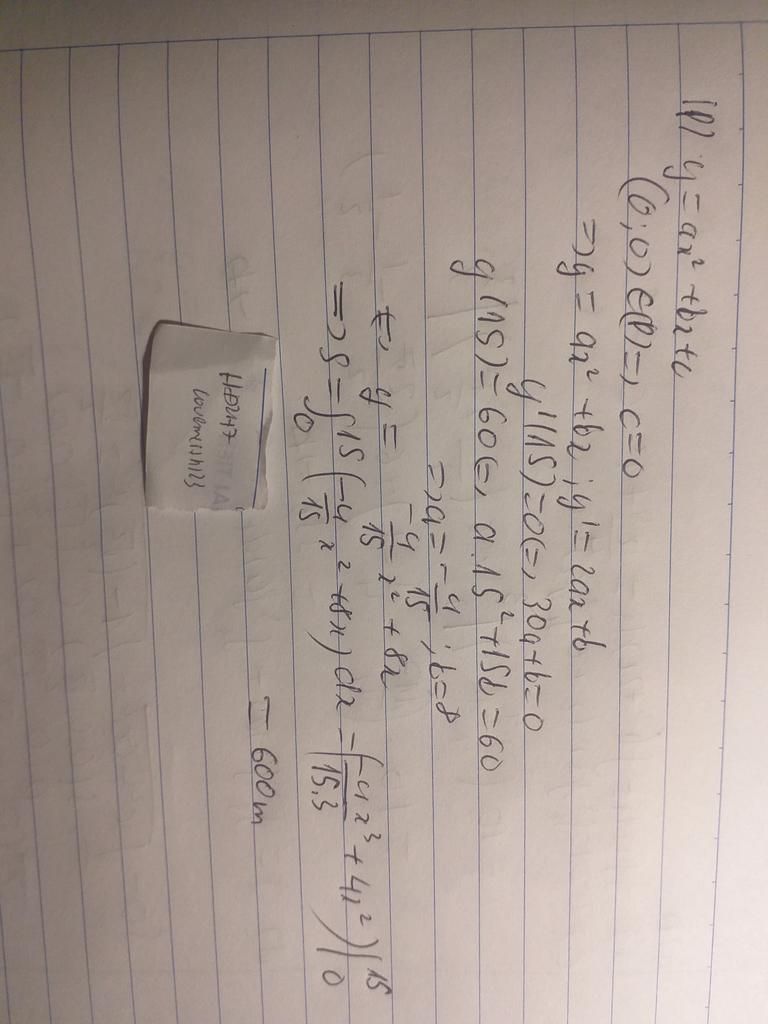 (P) y = ax² + bx + c
(0; 0) ∈ (P) => c = 0
=> y = ax² + bx ; y' = 2ax + b
y'(15) = 0 <=> 30a + b = 0
y(15) = 60 <=> a.15² + 15b = 60
=> a = -4/15 ; b = 8
<=> y = -4/15 x² + 8x
=> S = ∫₀15 (-4/15 x² + 8x) dx = (-4x³/15.3 + 4x²)|₀¹⁵
= 600m
lovemissh123